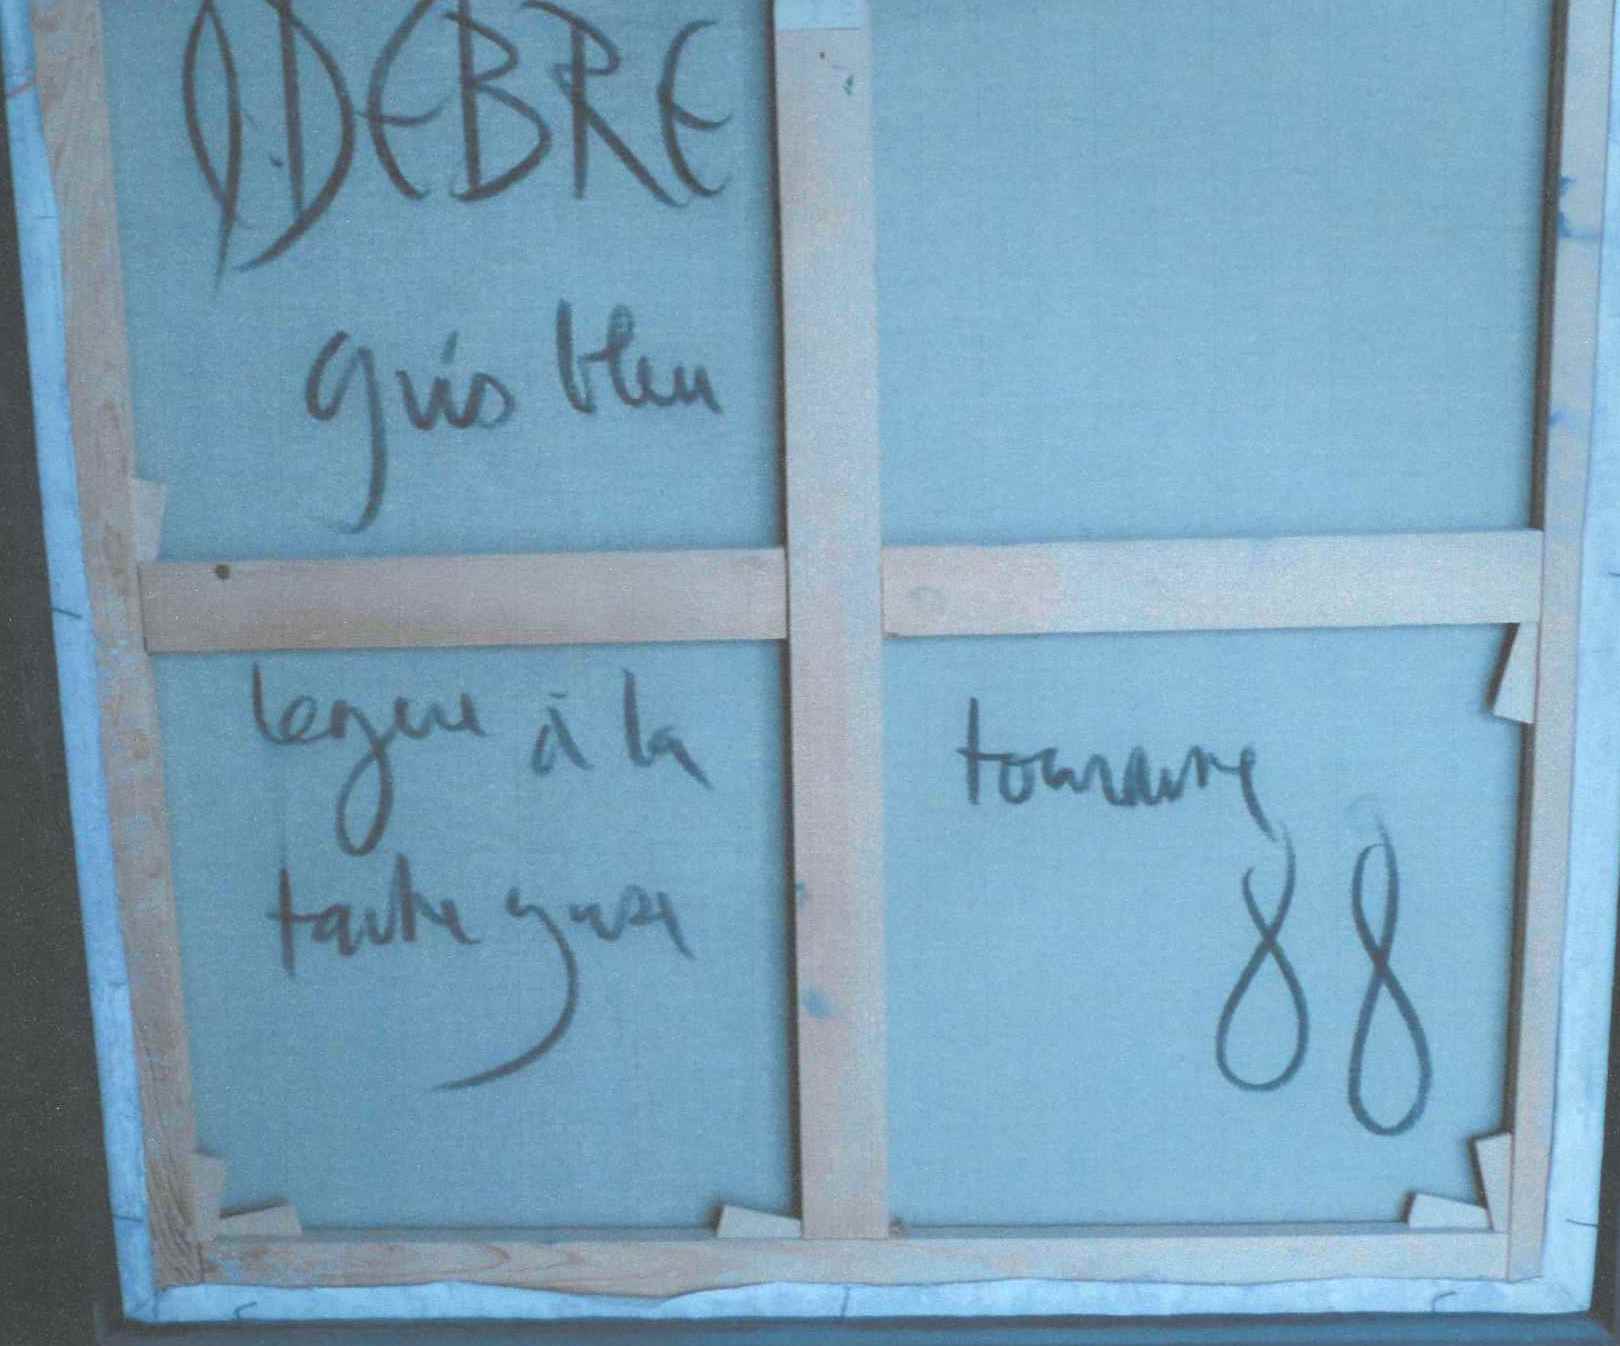 O DEBRE
gris bleu
légère à la
tache grise
touraine
88